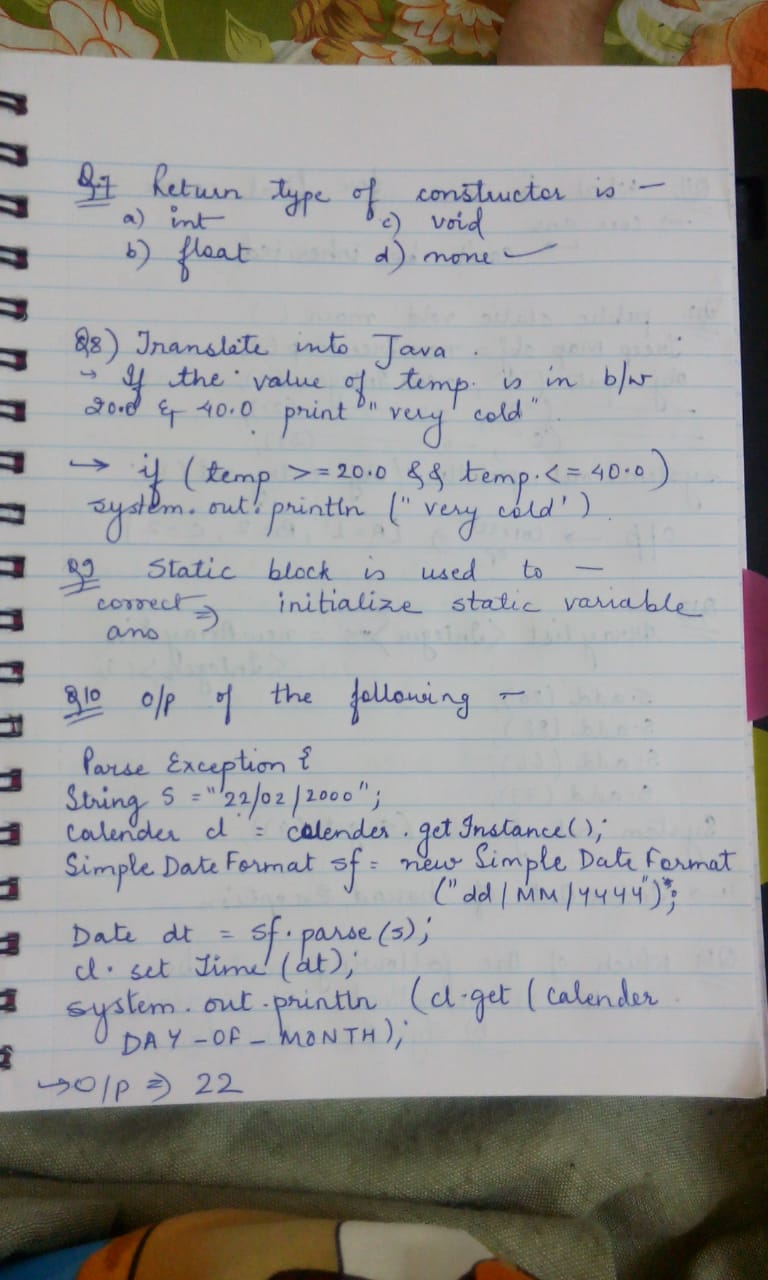 Q.7 Return type of constructor is :-
a) int c) void
b) float d) none ✓
Q8) Translate into Java.
→ If the value of temp. is in b/w
20.0 & 40.0 print "very cold".
→ if (temp >= 20.0 && temp. <= 40.0)
system.out.println ("very cold')
Q9 Static block is used to —
correct ⇒ initialize static variable
ans
Q10 O/p of the following —
Parse Exception {
String S = "22/02/2000";
calender cl = calender.getInstance();
Simple Date Format sf = new Simple Date Format
("dd/MM/yyyy");
Date dt = sf.parse(s);
cl.set Time (dt);
system.out.println (cl.get (calender.
DAY-OF-MONTH);
→ O/p ⇒ 22